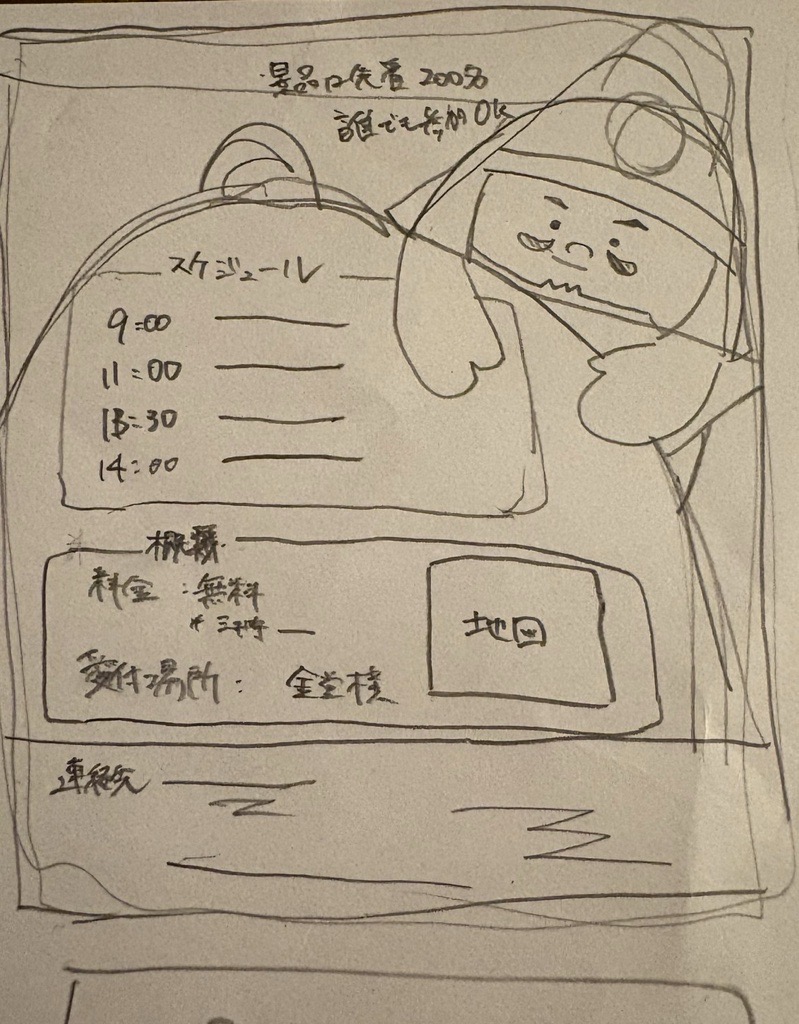 景品は先着200名
誰でも参加OK
スケジュール
9:00
11:00
13:30
14:00
概要
料金：無料
受付場所：
地図
連絡先